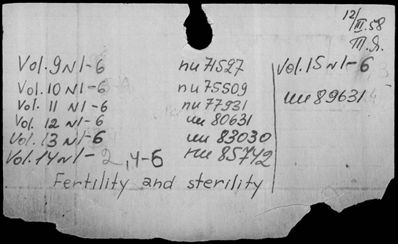 12/III.58
Т.Я.
Vol. 9 N 1-6 пи 71527
Vol. 10 N 1-6 пи 75509
Vol. 11 N 1-6 пи 77931
Vol. 12 N 1-6 ии 80631
Vol. 13 N 1-6 ии 83030
Vol. 14 N 1-2, 4-6 пи 85742
Vol. 15 N 1-6
ии 89631
Fertility and sterility